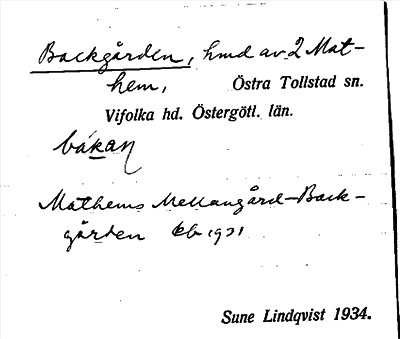 Backgården, hmd av 2 Mat-
hem, Östra Tollstad sn.
Vifolka hd. Östergötl. län.
bákan
Mathems Mellangård-Back-
gården Eb 1931
Sune Lindqvist 1934.